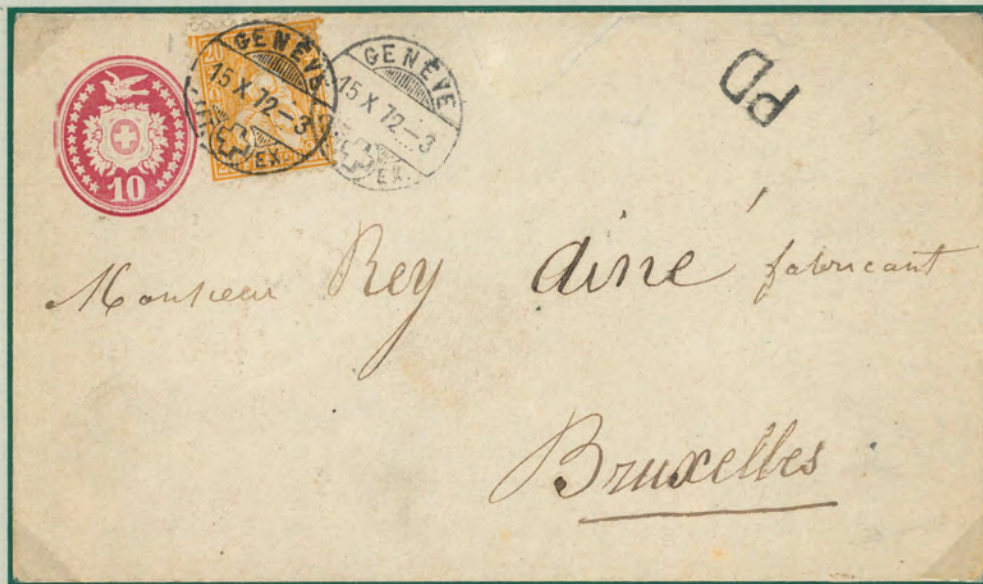 GENÈVE
15 X 72–3
EX.
GENÈVE
15 X 72–3
EX.
PD
20
10
Monsieur Rey ainé fabricant
Bruxelles